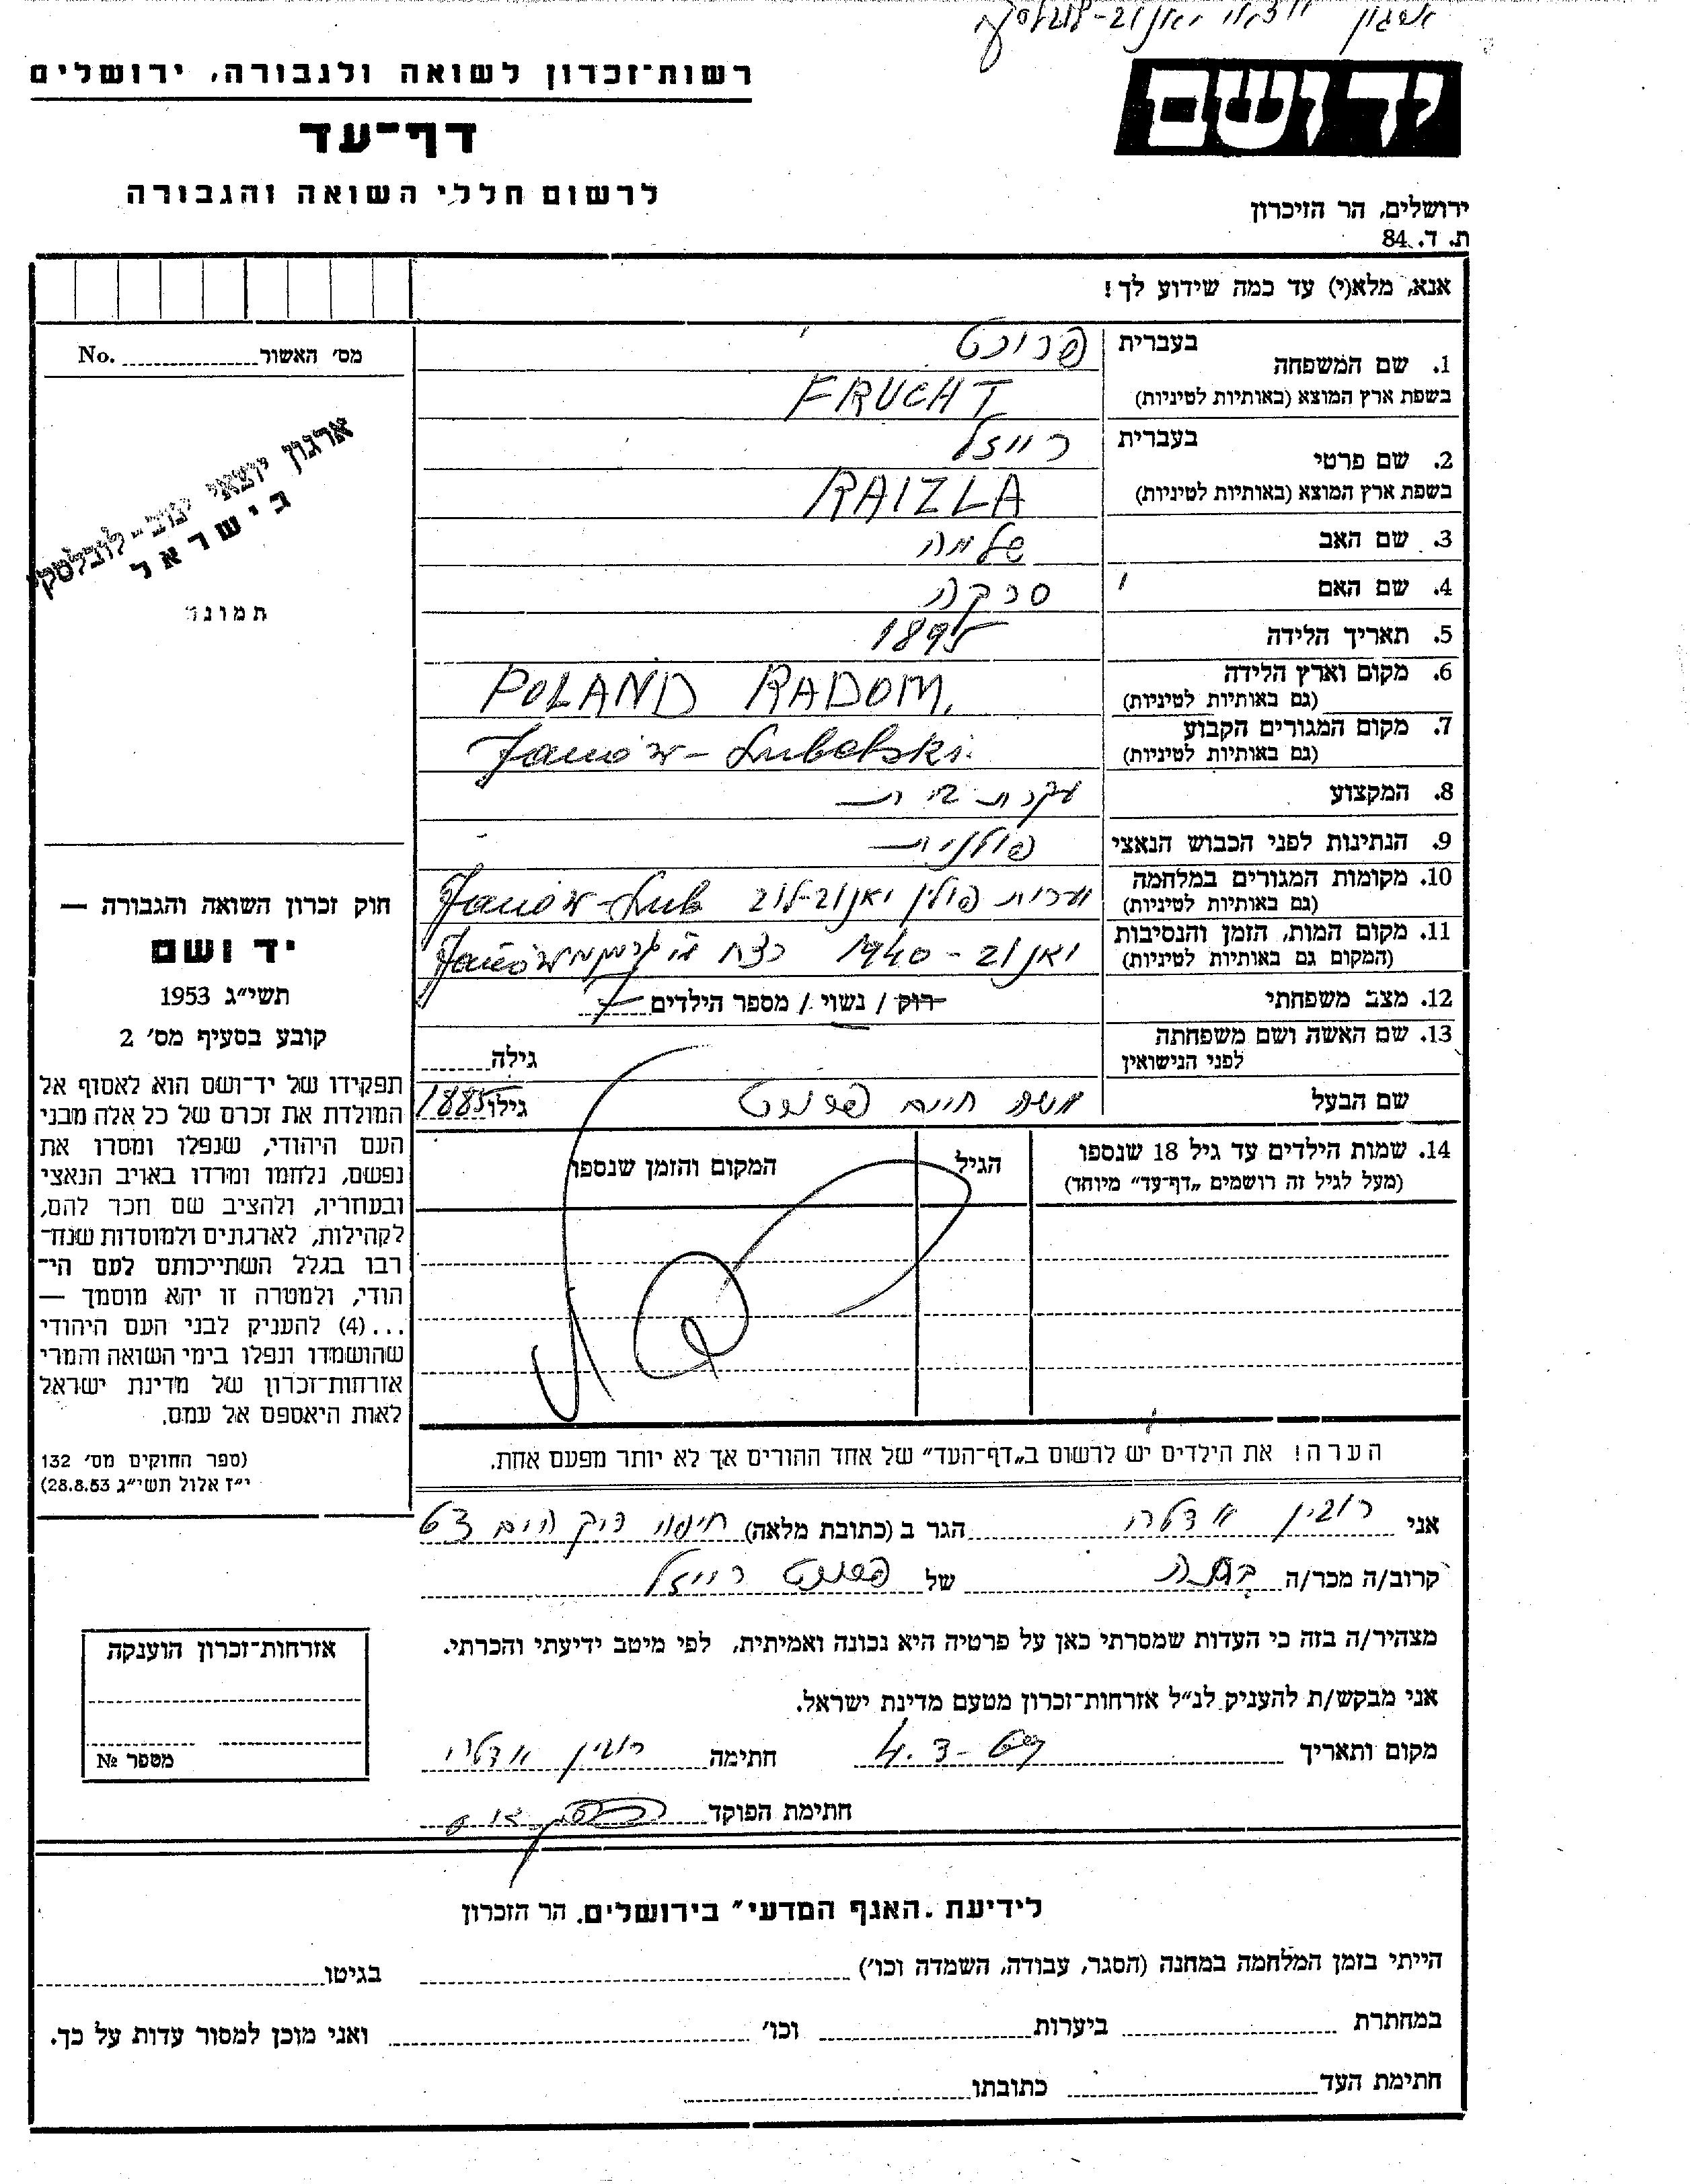 ארגון יוצאי יאנוב-לובלסקי
יד ושם
רשות־זכרון לשואה ולגבורה, ירושלים
דף־עד
לרשום חללי השואה והגבורה
ירושלים, הר הזיכרון
ת. ד. 84
אנא, מלא(י) עד כמה שידוע לך!
מס׳ האשור No.
ארגון יוצאי ינוב-לובלסקי
בישראל
תמונה
1. שם המשפחה בעברית פרוכט
בשפת ארץ המוצא (באותיות לטיניות) FRUCHT
2. שם פרטי בעברית רייזל
בשפת ארץ המוצא (באותיות לטיניות) RAIZLA
3. שם האב שלמה
4. שם האם סרקה
5. תאריך הלידה 1895
6. מקום וארץ הלידה
(גם באותיות לטיניות) POLAND RADOM,
7. מקום המגורים הקבוע
(גם באותיות לטיניות) Janów-Lubelski.
8. המקצוע עקרת בית
9. הנתינות לפני הכבוש הנאצי פולנית
10. מקומות המגורים במלחמה
(גם באותיות לטיניות) יערות פולין יאנוב-לוב Janów-Lub
11. מקום המות, הזמן והנסיבות
(המקום גם באותיות לטיניות) יאנוב - 1940 רצח Janów
12. מצב משפחתי רוק / נשוי / מספר הילדים 7
13. שם האשה ושם משפחתה
לפני הנישואין גילה
שם הבעל משה חיים פרוכט גילו 1885
14. שמות הילדים עד גיל 18 שנספו
(מעל לגיל זה רושמים „דף־עד״ מיוחד)
הגיל
המקום והזמן שנספו
הערה! את הילדים יש לרשום ב„דף־העד״ של אחד ההורים אך לא יותר מפעם אחת.
חוק זכרון השואה והגבורה —
יד ושם
תשי״ג 1953
קובע בסעיף מס׳ 2
תפקידו של יד־ושם הוא לאסוף אל
המולדת את זכרם של כל אלה מבני
העם היהודי, שנפלו ומסרו את
נפשם, נלחמו ומרדו באויב הנאצי
ובעוזריו, ולהציב שם וזכר להם,
לקהילות, לארגונים ולמוסדות שנח־
רבו בגלל השתייכותם לעם הי־
הודי, ולמטרה זו יהא מוסמך —
...(4) להעניק לבני העם היהודי
שהושמדו ונפלו בימי השואה והמרי
אזרחות־זכרון של מדינת ישראל
לאות היאספם אל עמם.
(ספר החוקים מס׳ 132
י״ז אלול תשי״ג 28.8.53)
אני רובין אדלה הגר ב (כתובת מלאה) חיפה
קרוב/ה מכר/ה של פרוכט רייזל
מצהיר/ה בזה כי העדות שמסרתי כאן על פרטיה היא נכונה ואמיתית, לפי מיטב ידיעתי והכרתי.
אני מבקש/ת להעניק לנ״ל אזרחות־זכרון מטעם מדינת ישראל.
מקום ותאריך חתימה רובין אדלה
חתימת הפוקד
אזרחות־זכרון הוענקה
מספר №
לידיעת „האגף המדעי״ בירושלים, הר הזכרון
הייתי בזמן המלחמה במחנה (הסגר, עבודה, השמדה וכו׳) בגיטו
במחתרת ביערות וכו׳ ואני מוכן למסור עדות על כך.
חתימת העד כתובתו